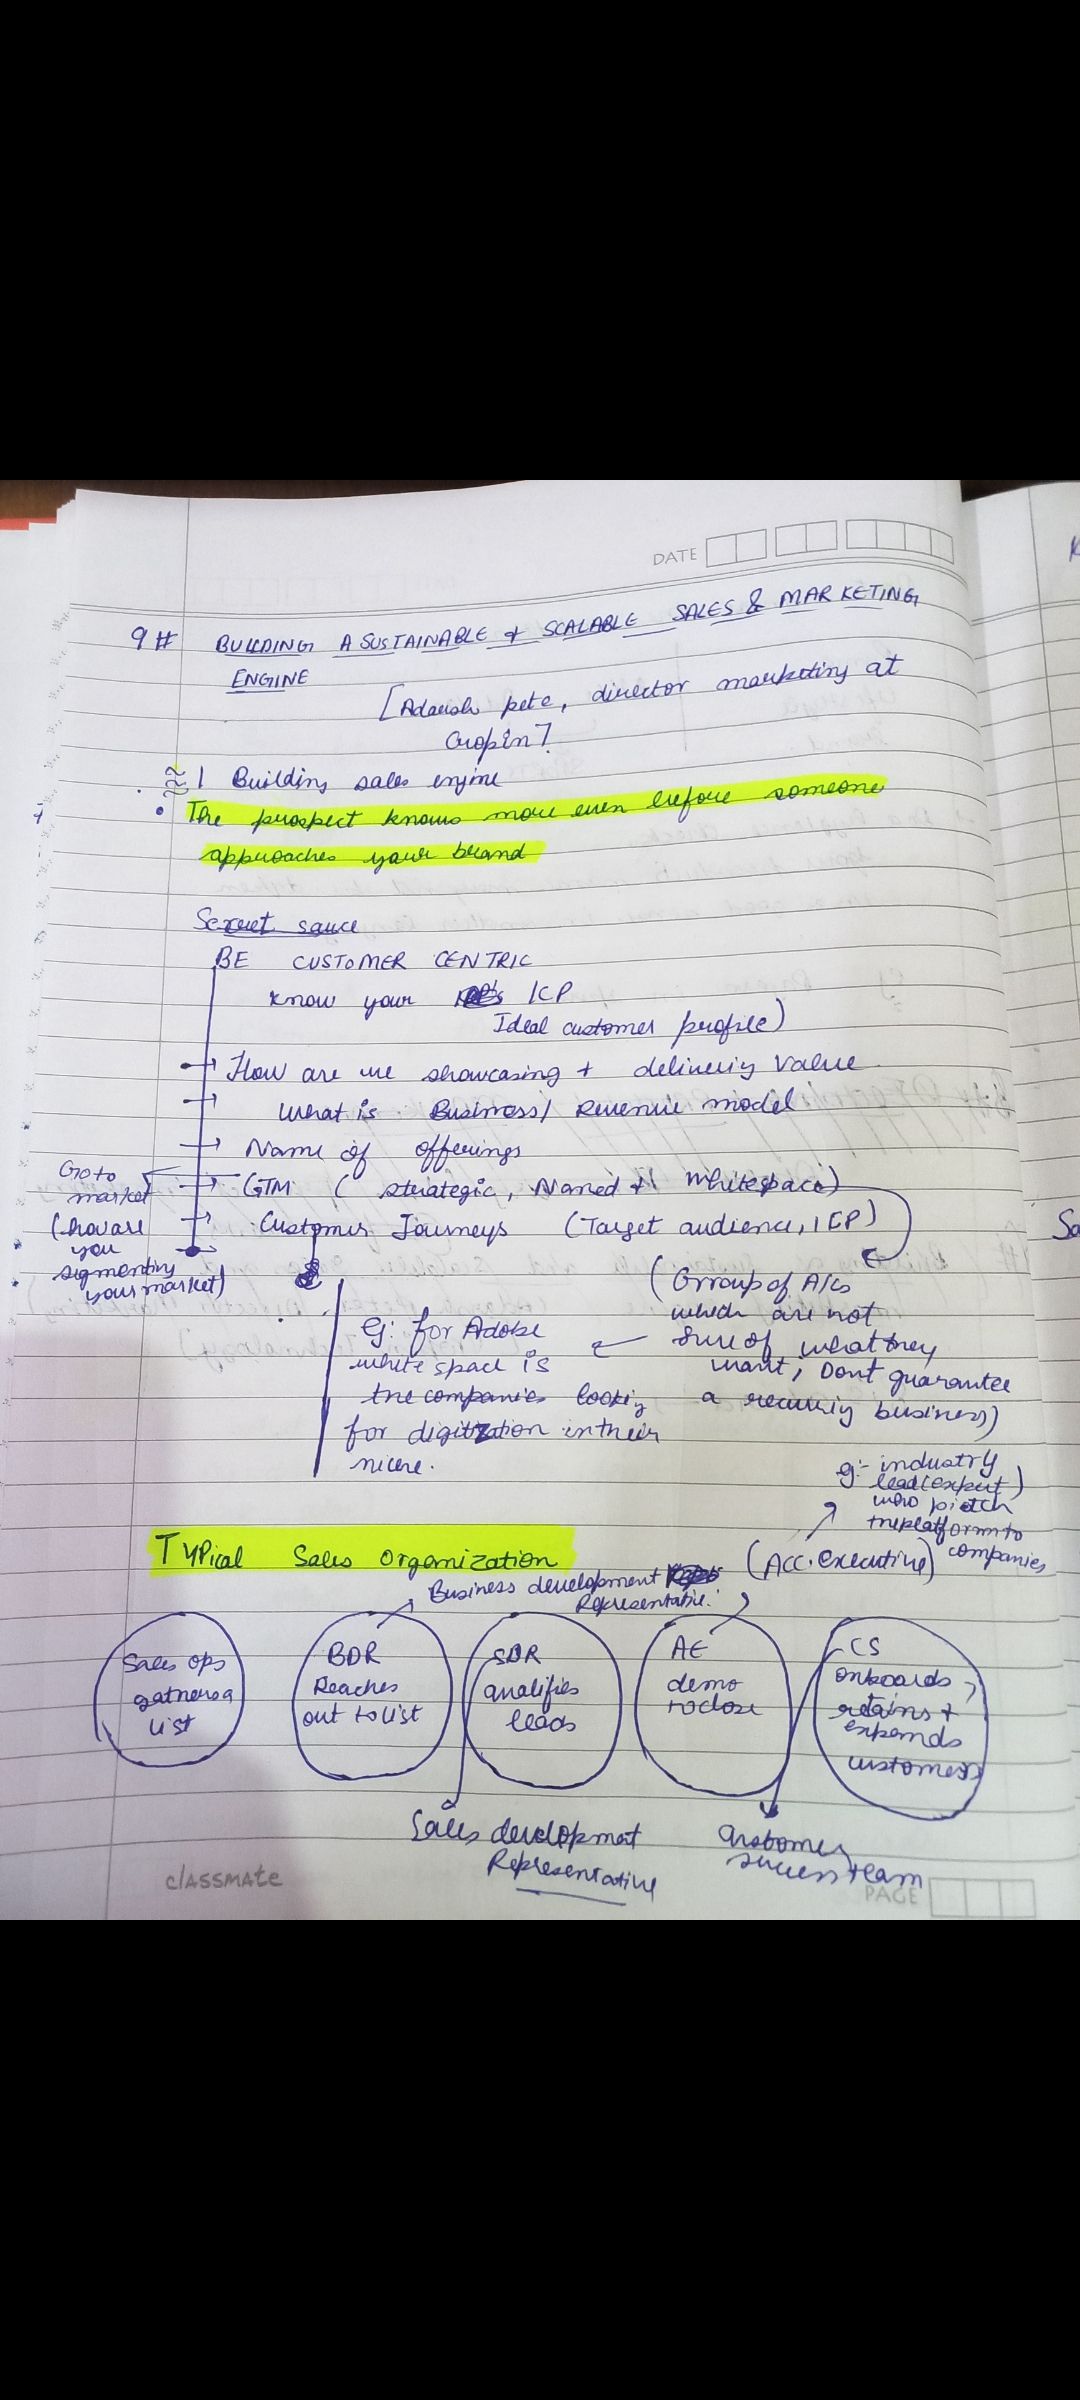 DATE
9# BUILDING A SUSTAINABLE + SCALABLE SALES & MARKETING
ENGINE
[Adarsh pete, director marketing at
Cropin].
1 Building sales engine
• The prospect knows more even before someone
approaches your brand
Secret sauce
BE CUSTOMER CENTRIC
know your ICP
Ideal customer profile)
→ How are we showcasing + delivering value
→ What is Business/ Revenue model
→ Name of offerings
→ GTM ( strategic, Named + whitespace)
→ Customer Journeys (Target audience, ICP)
Go to
market
(how are
you
segmenting
your market)
(Group of A/Cs
which are not
sure of what they
want, Dont guarantee
a recurring business)
eg: for Adobe
white space is
the companies looking
for digitzation in their
eg:- industry
lead (expert)
who pitch
the platform to
companies
Typical Sales Organization
Business development
Representative.
(Acc. executive)
Sales ops
gathers a
list
BDR
Reaches
out to list
SDR
qualifies
leads
AE
demo
to close
CS
onboards,
retains +
expands
customers
Sales development
Representative
Customer
success team
classmate
PAGE